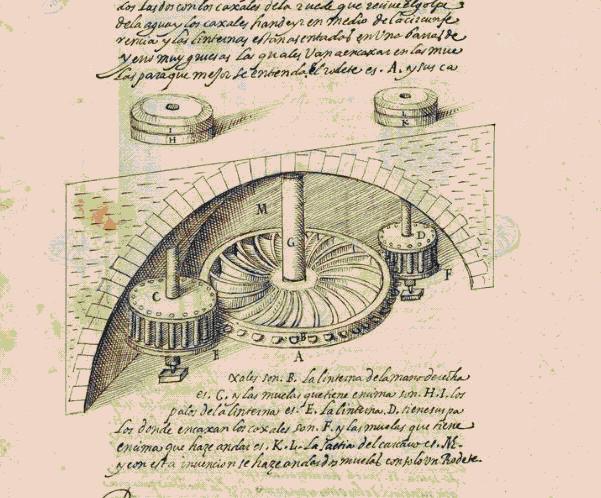 los lados con los caxales de la rueda que reciue el golpe
de la agua y los caxales han de yr en medio de la circunfe
rencia y las linternas estan asentadas en Una barras de
yerro muy gruesas las quales Van a encaxar en las mue
las para que mejor se entienda, el rodete es. A. y sus ca
I
H
L
K
M
G
D
C
F
B
E
A
xales son. B. la linterna de la mano derecha
es. C. y las muelas que tiene enzima son. H. I. los
palos de la linterna es. E. la linterna. D. tiene su pa
los donde encaxan los caxales son. F. y las muelas que tiene
encima que haze andar es. K. L. la del carcauo es. M.
y con esta inuencion se haze andar dos muelas con solo vn Rodete.